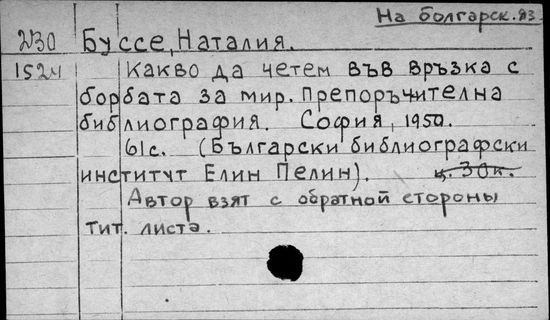 На болгарск. яз.
Д30 Буссе, Наталия.
1524 Какво да четем във връзка с
борбата за мир. Препоръчителна
библиография. София, 1950.
61с. (Български библиографски
институт Елин Пелин). ц. 30к.
Автор взят с обратной стороны
тит. листа.